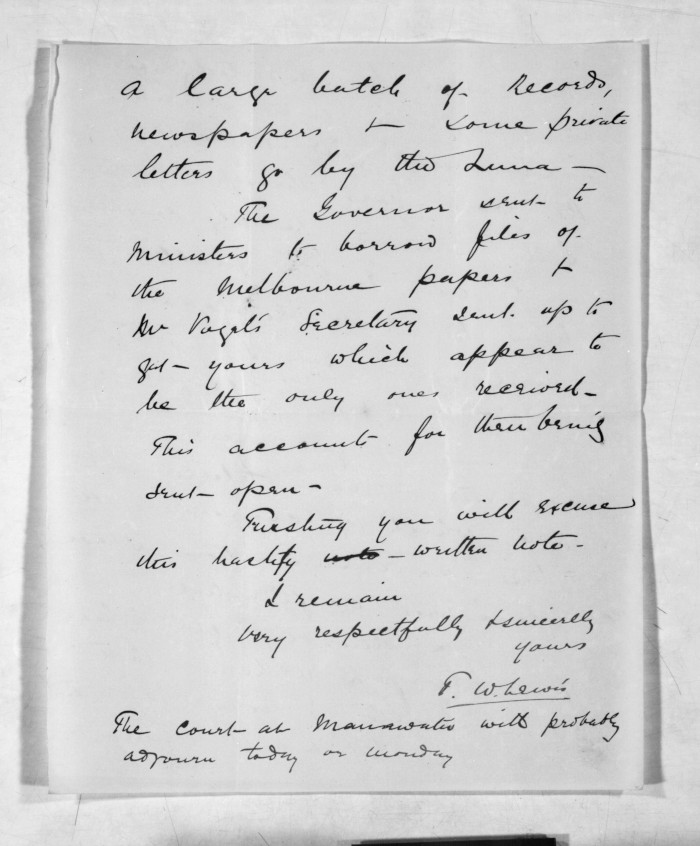 a large batch of Records,
newspapers & some private
letters go by the Luna –
The Governor sent to
Ministers to borrow files of
the Melbourne papers &
Mr Vogel's Secretary sent up to
get – yours which appear to
be the only ones received –
This accounts for them being
sent – open –
Trusting you will excuse
this hastily note – written note –
I remain
very respectfully & sincerely
yours
T. W. Lewis
The Court at Manawatu will probably
adjourn today or Monday